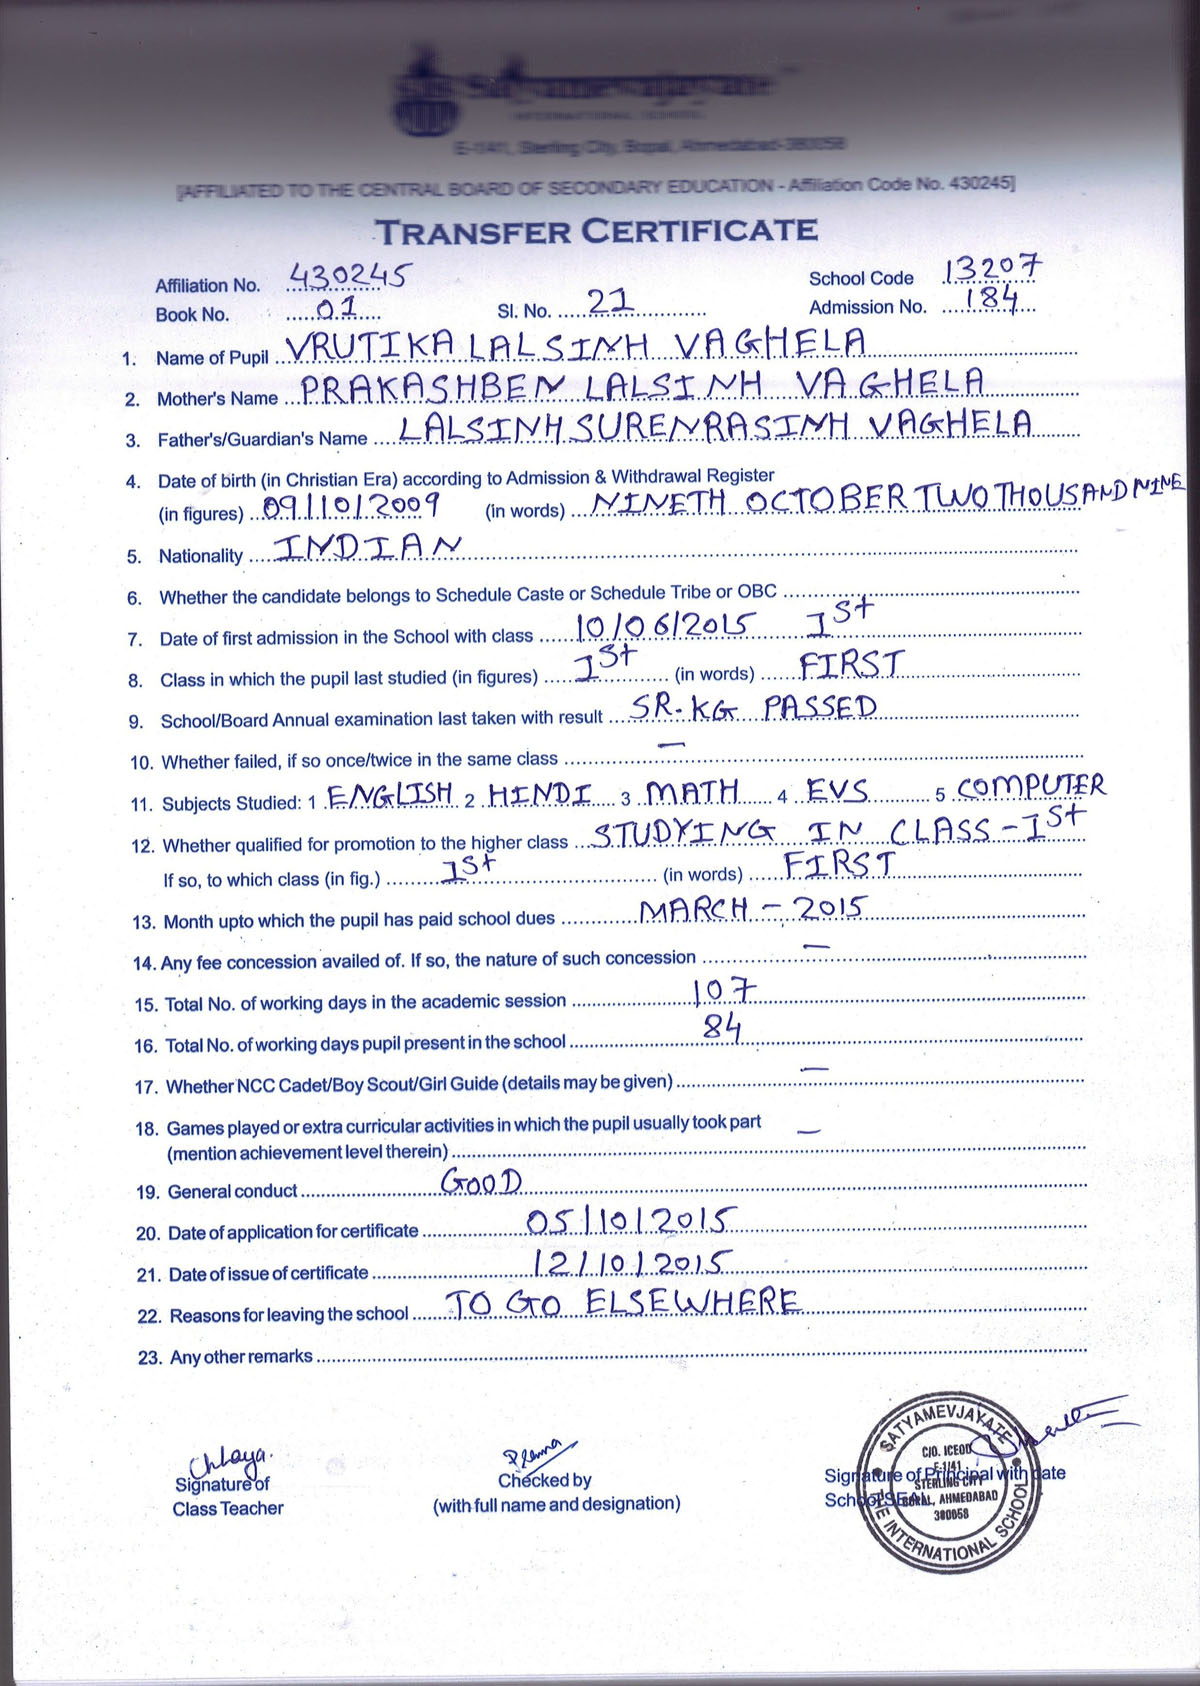 Satyamevajayate
INTERNATIONAL SCHOOL
E-1/41, Sterling City, Bopal, Ahmedabad-380058
[AFFILIATED TO THE CENTRAL BOARD OF SECONDARY EDUCATION - Affiliation Code No. 430245]
TRANSFER CERTIFICATE
Affiliation No. 430245 School Code 13207
Book No. 01 Sl. No. 21 Admission No. 184
1. Name of Pupil VRUTIKA LALSINH VAGHELA
2. Mother's Name PRAKASHBEN LALSINH VAGHELA
3. Father's/Guardian's Name LALSINH SURENRASINH VAGHELA
4. Date of birth (in Christian Era) according to Admission & Withdrawal Register
(in figures) 09/10/2009 (in words) NINETH OCTOBER TWO THOUSAND NINE
5. Nationality INDIAN
6. Whether the candidate belongs to Schedule Caste or Schedule Tribe or OBC
7. Date of first admission in the School with class 10/06/2015 1st
8. Class in which the pupil last studied (in figures) 1st (in words) FIRST
9. School/Board Annual examination last taken with result SR-KG PASSED
10. Whether failed, if so once/twice in the same class —
11. Subjects Studied: 1 ENGLISH 2 HINDI 3 MATH 4 EVS 5 COMPUTER
12. Whether qualified for promotion to the higher class STUDYING IN CLASS - 1st
If so, to which class (in fig.) 1st (in words) FIRST
13. Month upto which the pupil has paid school dues MARCH - 2015
14. Any fee concession availed of. If so, the nature of such concession —
15. Total No. of working days in the academic session 107
16. Total No. of working days pupil present in the school 84
17. Whether NCC Cadet/Boy Scout/Girl Guide (details may be given) —
18. Games played or extra curricular activities in which the pupil usually took part —
(mention achievement level therein)
19. General conduct GOOD
20. Date of application for certificate 05/10/2015
21. Date of issue of certificate 12/10/2015
22. Reasons for leaving the school TO GO ELSEWHERE
23. Any other remarks
Chhaya.
Signature of Checked by Signature of Principal with date
Class Teacher (with full name and designation) School SEAL
SATYAMEVJAYATE
THE INTERNATIONAL SCHOOL
C/O. ICEOD
E-1/41
STERLING CITY
BOPAL, AHMEDABAD
380058